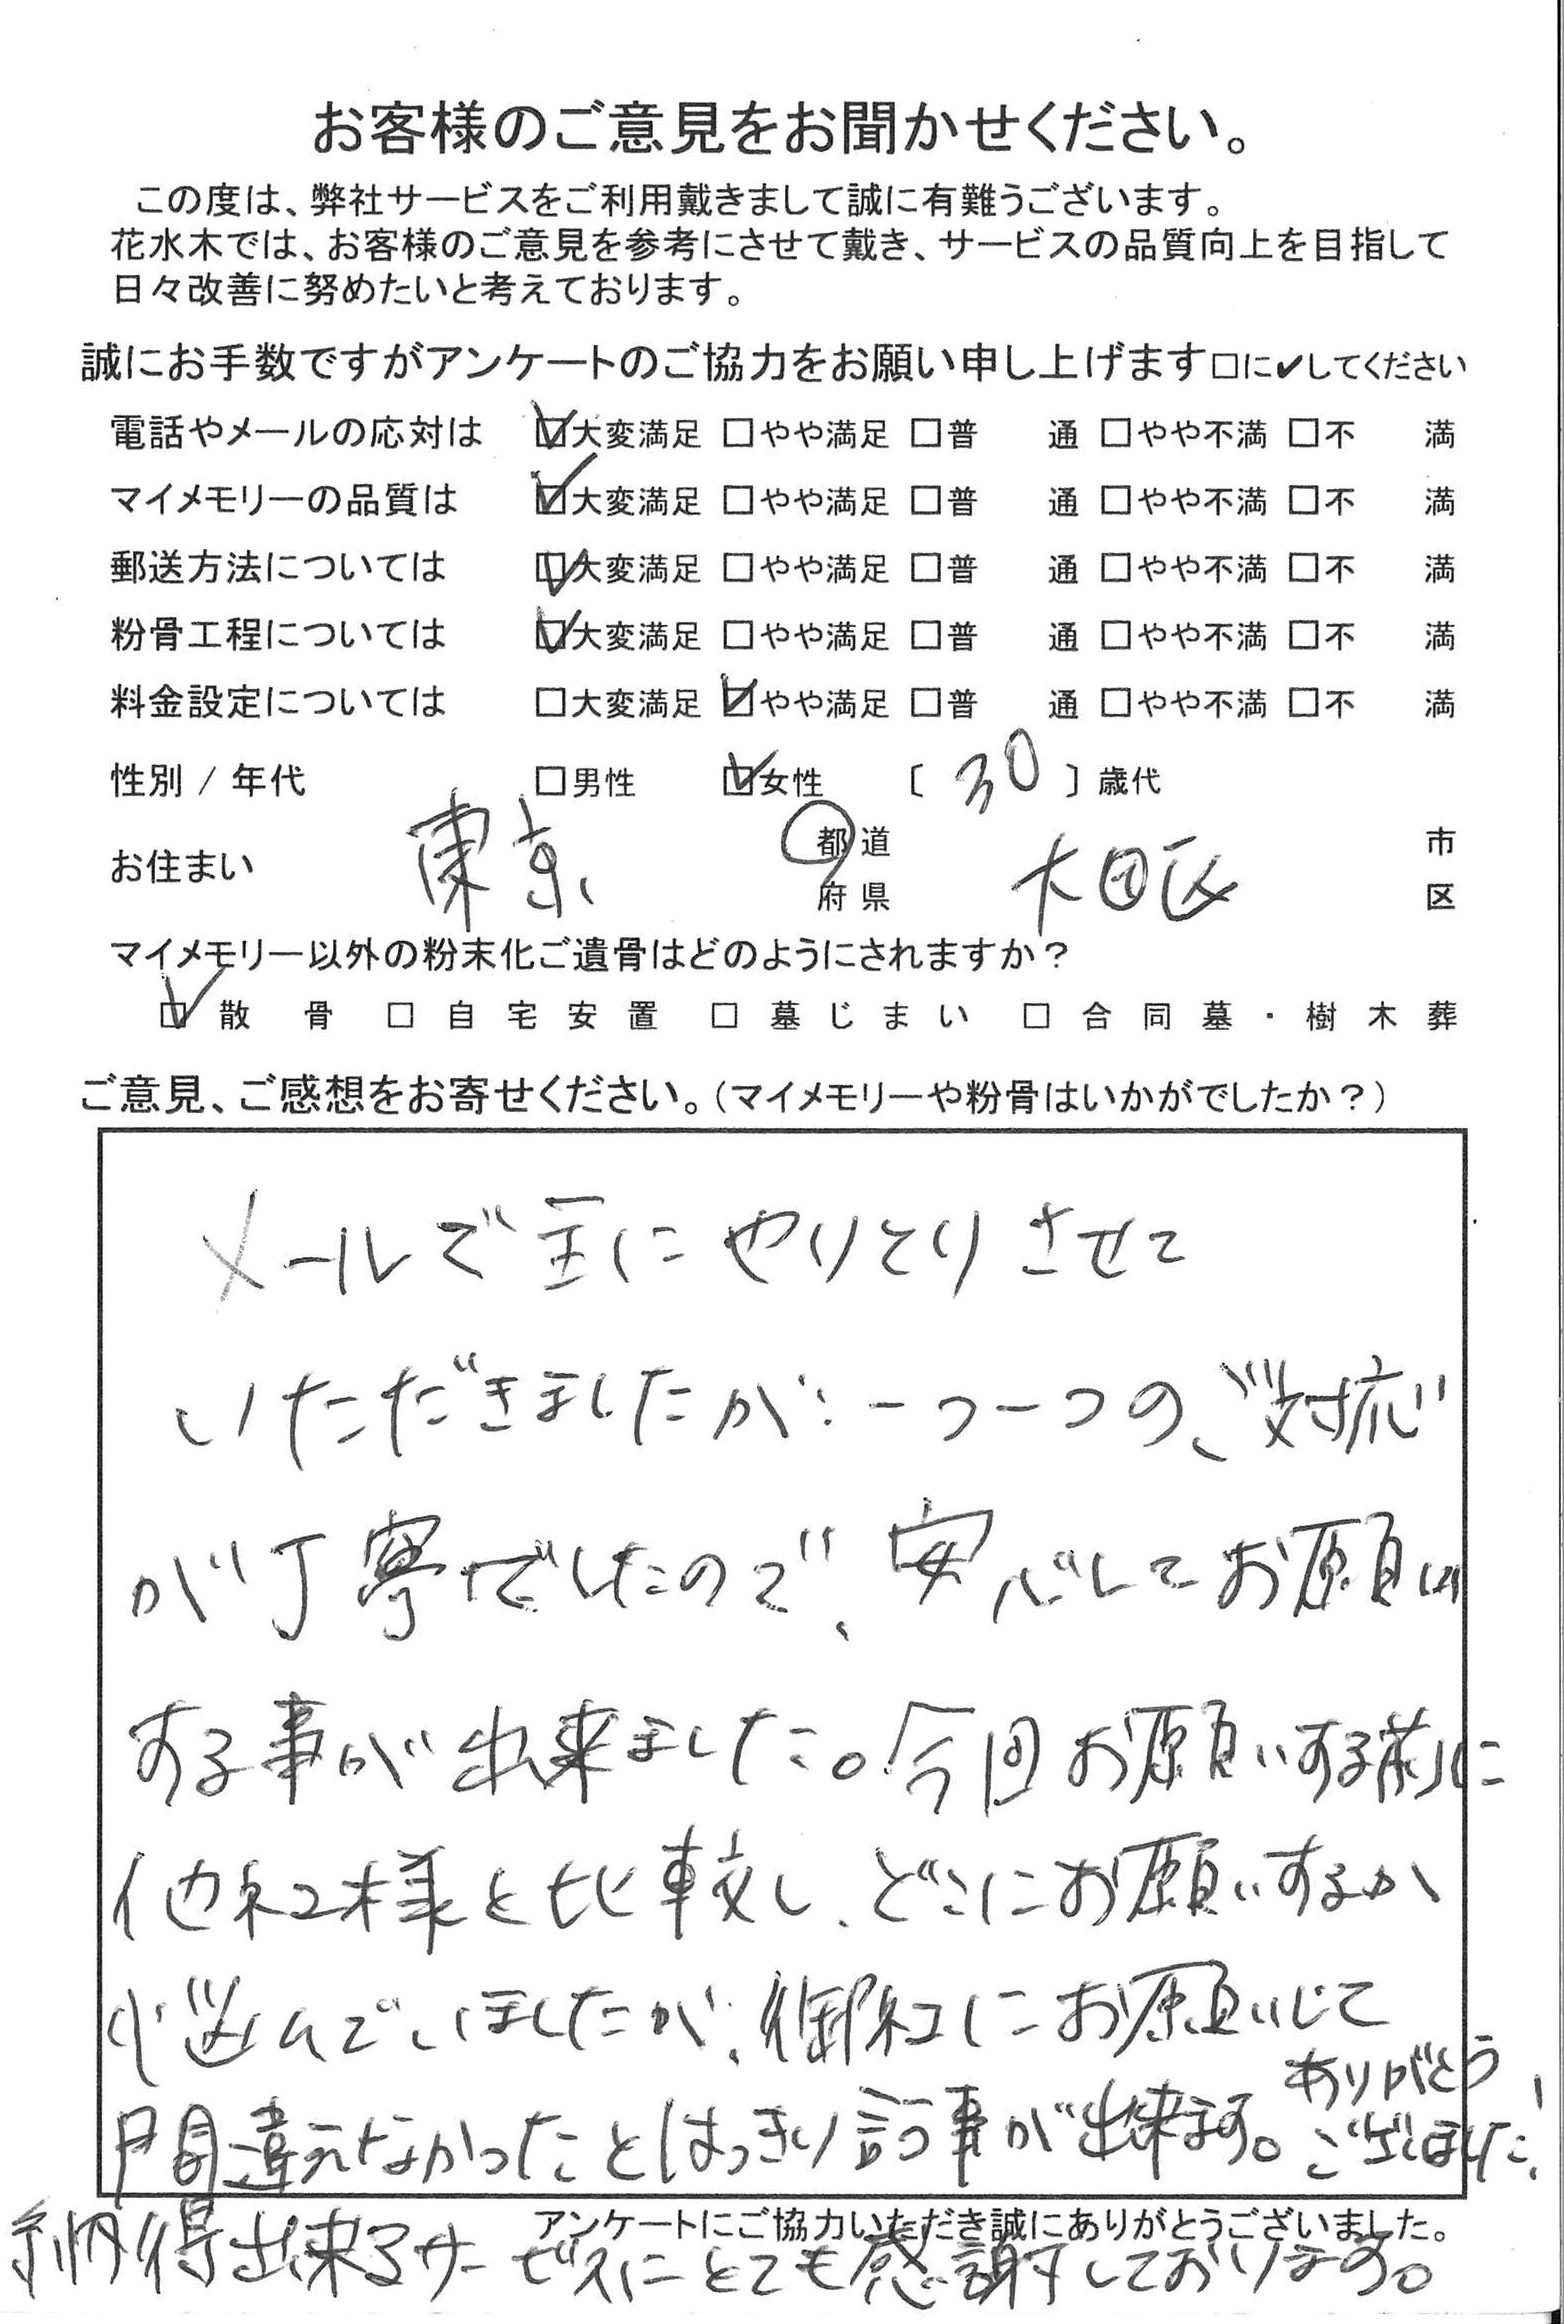 お客様のご意見をお聞かせください。
この度は、弊社サービスをご利用戴きまして誠に有難うございます。
花水木では、お客様のご意見を参考にさせて戴き、サービスの品質向上を目指して
日々改善に努めたいと考えております。
誠にお手数ですがアンケートのご協力をお願い申し上げます□に✔してください
電話やメールの応対は ☑大変満足 □やや満足 □普 通 □やや不満 □不 満
マイメモリーの品質は ☑大変満足 □やや満足 □普 通 □やや不満 □不 満
郵送方法については ☑大変満足 □やや満足 □普 通 □やや不満 □不 満
粉骨工程については ☑大変満足 □やや満足 □普 通 □やや不満 □不 満
料金設定については □大変満足 ☑やや満足 □普 通 □やや不満 □不 満
性別 / 年代 □男性 ☑女性 〔 30 〕歳代
お住まい 東京 都道府県 大田区 市区
マイメモリー以外の粉末化ご遺骨はどのようにされますか？
☑散骨 □自宅安置 □墓じまい □合同墓・樹木葬
ご意見、ご感想をお寄せください。（マイメモリーや粉骨はいかがでしたか？）
メールで主にやりとりさせて
いただきましたが、一つ一つのご対応
が丁寧でしたので、安心してお願い
する事が出来ました。今回お願いする前に
他社様と比較し、どこにお願いするか
悩んでいましたが、御社にお願いして
間違えなかったとはっきり言う事が出来ます。ありがとう
ございました!
アンケートにご協力いただき誠にありがとうございました。
納得出来るサービスにとても感謝しております。